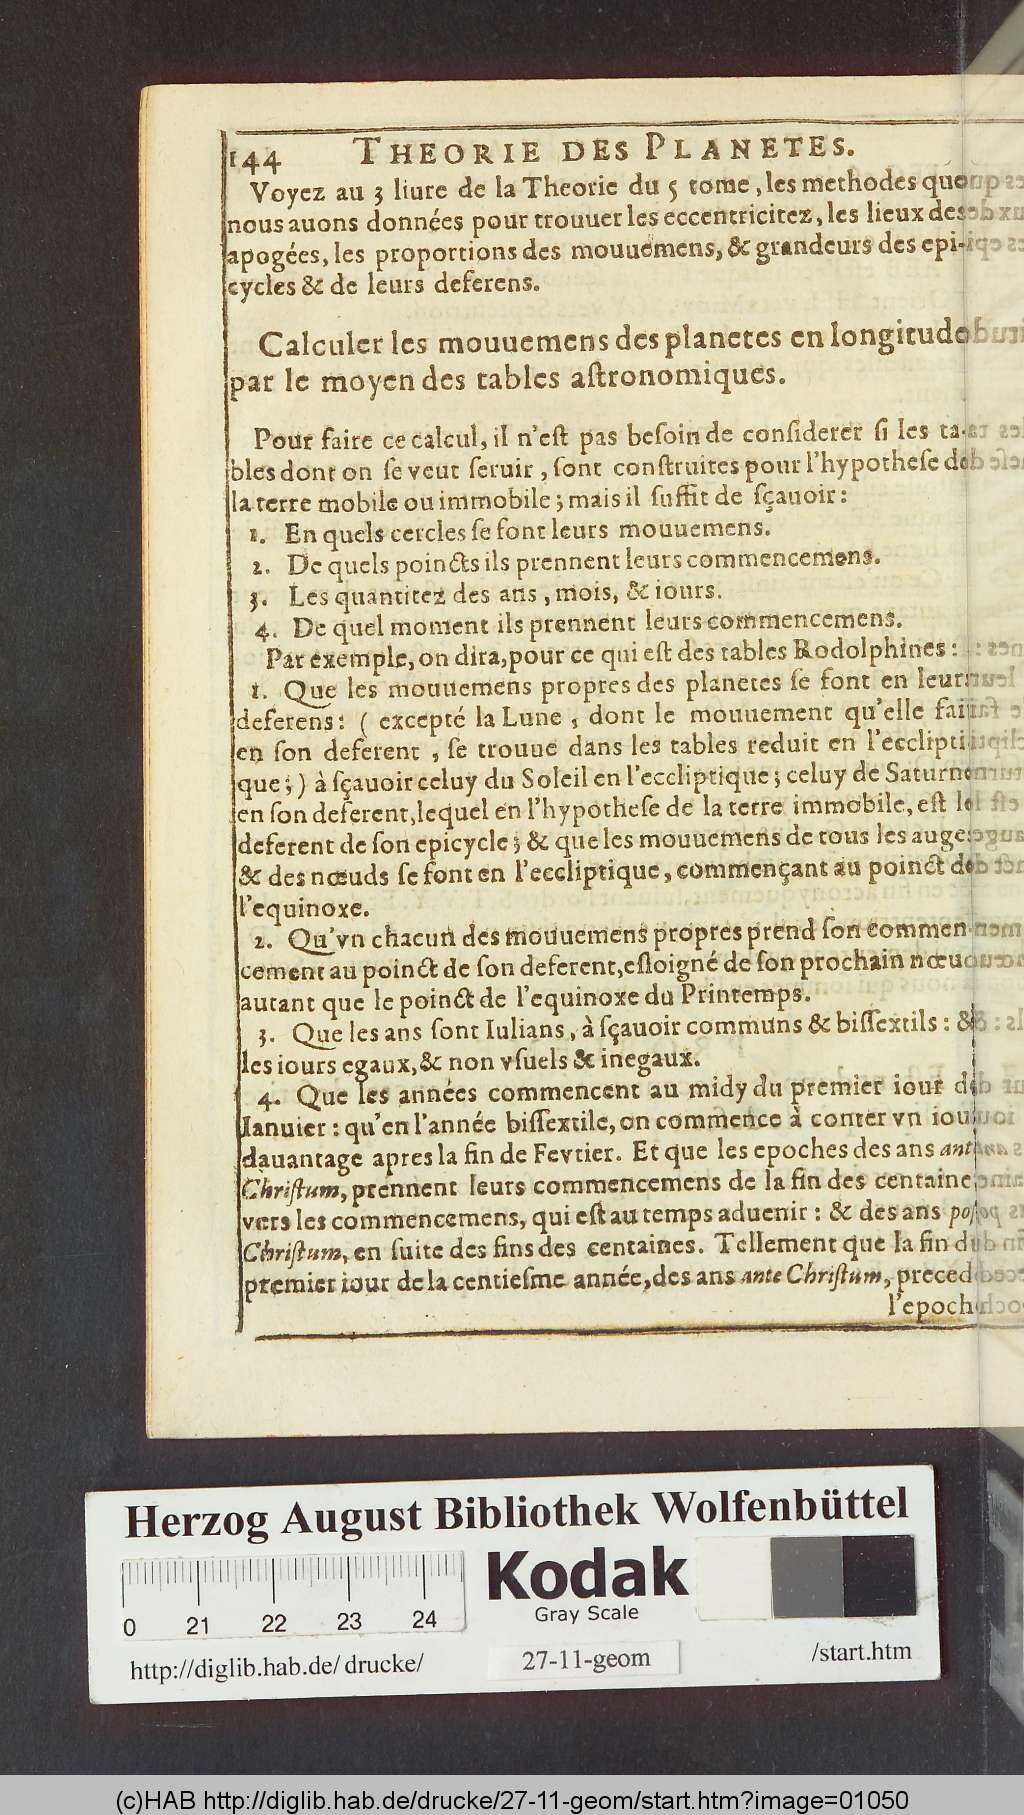 144 THEORIE DES PLANETES.
Voyez au 3 liure de la Theorie du 5 tome, les methodes que
nous auons données pour trouuer les eccentricitez, les lieux des
apogées, les proportions des mouuemens, & grandeurs des epi-
cycles & de leurs deferens.
Calculer les mouuemens des planetes en longitude
par le moyen des tables aſtronomiques.
Pour faire ce calcul, il n'eſt pas beſoin de conſiderer ſi les ta-
bles dont on ſe veut ſeruir, ſont conſtruites pour l'hypotheſe de
la terre mobile ou immobile; mais il ſuffit de ſçauoir:
1. En quels cercles ſe font leurs mouuemens.
2. De quels poincts ils prennent leurs commencemens.
3. Les quantitez des ans, mois, & iours.
4. De quel moment ils prennent leurs commencemens.
Par exemple, on dira, pour ce qui eſt des tables Rodolphines:
1. Que les mouuemens propres des planetes ſe font en leurs
deferens: ( excepté la Lune, dont le mouuement qu'elle fait
en ſon deferent, ſe trouue dans les tables reduit en l'eccliptі-
que;) à ſçauoir celuy du Soleil en l'eccliptique; celuy de Saturne
en ſon deferent, lequel en l'hypotheſe de la terre immobile, eſt le
deferent de ſon epicycle; & que les mouuemens de tous les auges
& des nœuds ſe font en l'eccliptique, commençant au poinct de
l'equinoxe.
2. Qu'vn chacun des mouuemens propres prend ſon commen-
cement au poinct de ſon deferent, eſloigné de ſon prochain nœud
autant que le poinct de l'equinoxe du Printemps.
3. Que les ans ſont Iulians, à ſçauoir communs & biſſextils: &
les iours egaux, & non vſuels & inegaux.
4. Que les années commencent au midy du premier iour de
Ianuier: qu'en l'année biſſextile, on commence à conter vn iour
dauantage apres la fin de Fevrier. Et que les epoches des ans ante
Chriſtum, prennent leurs commencemens de la fin des centaines
vers les commencemens, qui eſt au temps aduenir: & des ans poſt
Chriſtum, en ſuite des fins des centaines. Tellement que la fin du
premier iour de la centieſme année, des ans ante Chriſtum, preced
l'epoch
Herzog August Bibliothek Wolfenbüttel
0 21 22 23 24
Kodak
Gray Scale
http://diglib.hab.de/drucke/ 27-11-geom /start.htm
(c)HAB http://diglib.hab.de/drucke/27-11-geom/start.htm?image=01050